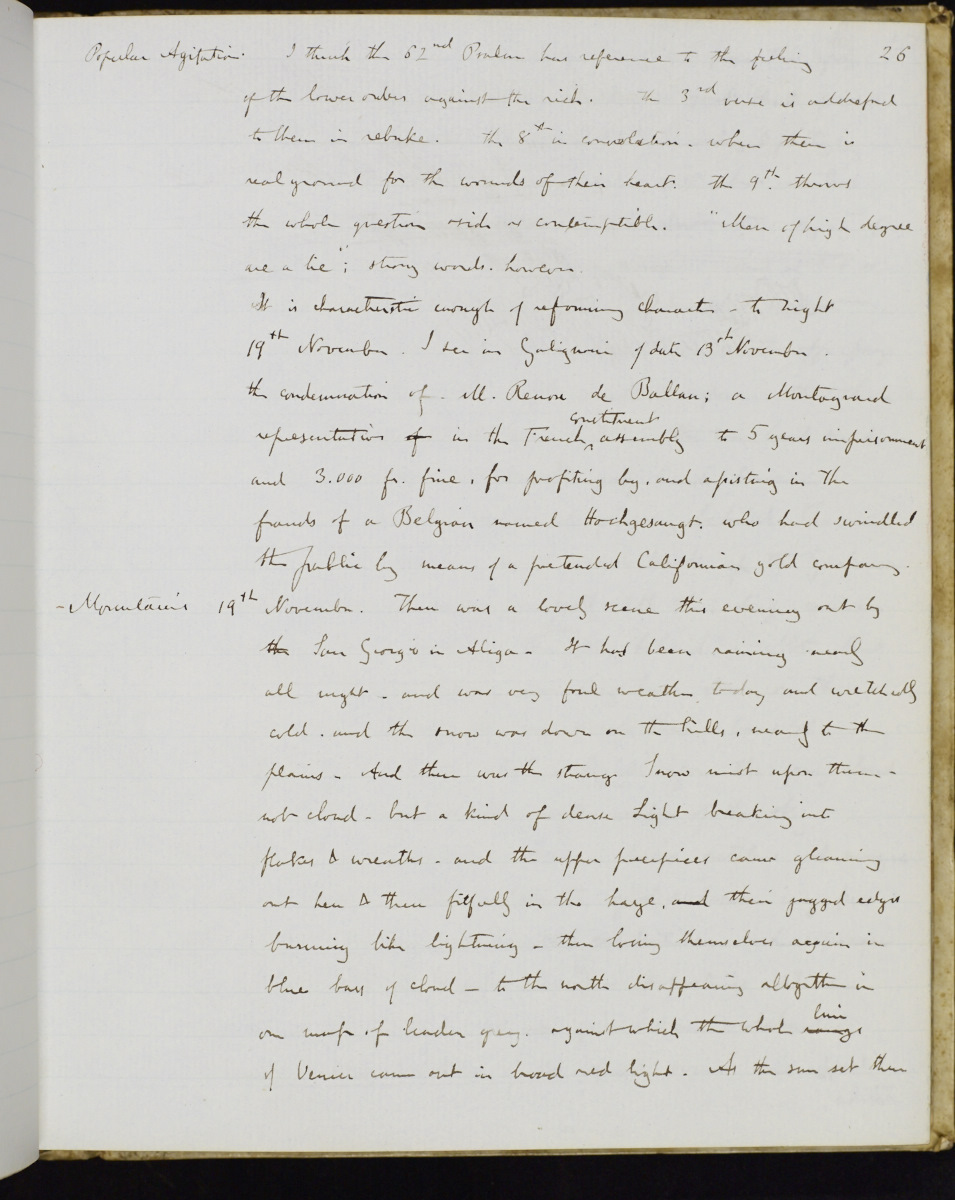 Popular Agitation. I think the 62nd Psalm has reference to the feeling 26
of the lower orders against the rich. The 3rd verse is addressed
to them in rebuke. The 8th in consolation. when there is
real ground for the wounds of their heart. the 9th throws
the whole question aside as contemptible. "Men of high degree
are a lie"; strong words. however.
It is characteristic enough of reforming character - to night
19th November. I see in Galignani of date 13th November.
the condemnation of M. Renou de Ballon; a Montagnard
representative of in the French constituent assembly to 5 years imprisonment
and 3.000 fr. fine, for profiting by, and assisting in the
frauds of a Belgian named Hochgesangt. who had swindled
the public by means of a pretended Californian gold company.
- Mountains 19th November. There was a lovely scene this evening out by
the San Giorgio in Aliga - It had been raining nearly
all night - and was very foul weather today and wretchedly
cold. and the snow was down on the hills, nearly to the
plains - And there was the strange Snow mist upon them -
not cloud - but a kind of dense Light breaking into
flakes & wreaths - and the upper precipices came gleaming
out here & there fitfully in the haze, and their jagged edges
burning like lightning - then losing themselves again in
blue bars of cloud - to the north disappearing altogether in
one mass of leaden grey. against which the whole range line
of Venice came out in broad red light. As the sun set there